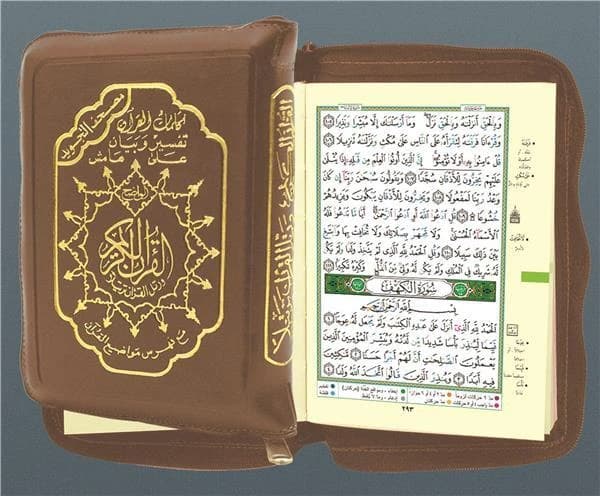 مصحف التجويد
كلمات القرآن
تفسير وبيان
على هامش
القرآن الكريم
ورتل القرآن ترتيلا
مع فهرس مواضيع القرآن
وَبِالْحَقِّ أَنزَلْنَٰهُ وَبِالْحَقِّ نَزَلَ وَمَا أَرْسَلْنَٰكَ إِلَّا مُبَشِّرًا وَنَذِيرًا ١٠٥
وَقُرْءَانًا فَرَقْنَٰهُ لِتَقْرَأَهُ عَلَى النَّاسِ عَلَىٰ مُكْثٍ وَنَزَّلْنَٰهُ تَنزِيلًا ١٠٦
قُلْ ءَامِنُوا بِهِ أَوْ لَا تُؤْمِنُوا إِنَّ الَّذِينَ أُوتُوا الْعِلْمَ مِن قَبْلِهِ إِذَا يُتْلَىٰ
عَلَيْهِمْ يَخِرُّونَ لِلْأَذْقَانِ سُجَّدًا ١٠٧ وَيَقُولُونَ سُبْحَٰنَ رَبِّنَا إِن كَانَ
وَعْدُ رَبِّنَا لَمَفْعُولًا ١٠٨ وَيَخِرُّونَ لِلْأَذْقَانِ يَبْكُونَ وَيَزِيدُهُمْ
خُشُوعًا ١٠٩ قُلِ ادْعُوا اللَّهَ أَوِ ادْعُوا الرَّحْمَٰنَ أَيًّا مَّا تَدْعُوا فَلَهُ
الْأَسْمَاءُ الْحُسْنَىٰ وَلَا تَجْهَرْ بِصَلَاتِكَ وَلَا تُخَافِتْ بِهَا وَابْتَغِ
بَيْنَ ذَٰلِكَ سَبِيلًا ١١٠ وَقُلِ الْحَمْدُ لِلَّهِ الَّذِي لَمْ يَتَّخِذْ وَلَدًا وَلَمْ يَكُن
لَّهُ شَرِيكٌ فِي الْمُلْكِ وَلَمْ يَكُن لَّهُ وَلِيٌّ مِّنَ الذُّلِّ وَكَبِّرْهُ تَكْبِيرًا ١١١
سُورَةُ الْكَهْفِ
بِسْمِ اللَّهِ الرَّحْمَٰنِ الرَّحِيمِ
الْحَمْدُ لِلَّهِ الَّذِي أَنزَلَ عَلَىٰ عَبْدِهِ الْكِتَٰبَ وَلَمْ يَجْعَل لَّهُ عِوَجًا ١
قَيِّمًا لِّيُنذِرَ بَأْسًا شَدِيدًا مِّن لَّدُنْهُ وَيُبَشِّرَ الْمُؤْمِنِينَ الَّذِينَ
يَعْمَلُونَ الصَّٰلِحَٰتِ أَنَّ لَهُمْ أَجْرًا حَسَنًا ٢ مَّٰكِثِينَ
فِيهِ أَبَدًا ٣ وَيُنذِرَ الَّذِينَ قَالُوا اتَّخَذَ اللَّهُ وَلَدًا ٤
٢٩٣